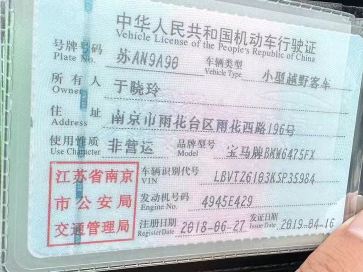 中华人民共和国机动车行驶证
Vehicle License of the People's Republic of China
号牌号码 苏AN9A90 车辆类型 小型越野客车
Plate No. Vehicle Type
所有人 于晓玲
Owner
住址 南京市雨花台区雨花西路196号
Address
使用性质 非营运 品牌型号 宝马牌BMW6475FX
Use Character Model
江苏省南京 车辆识别代号 LBVTZ6103KSP35984
VIN
市公安局 发动机号码 4945E429
Engine No.
交通管理局 注册日期 2018-06-27 发证日期 2019-04-16
Register Date Issue Date